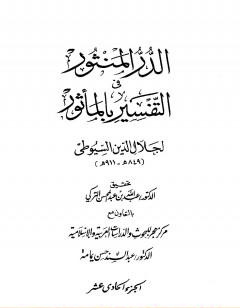 الدر المنثور
في
التفسير بالمأثور
لجلال الدين السيوطي
(٨٤٩هـ - ٩١١هـ)
تحقيق
الدكتور عبد الله بن عبد المحسن التركي
بالتعاون مع
مركز هجر للبحوث والدراسات العربية والإسلامية
الدكتور عبد السند حسن يمامة
الجزء الحادي عشر